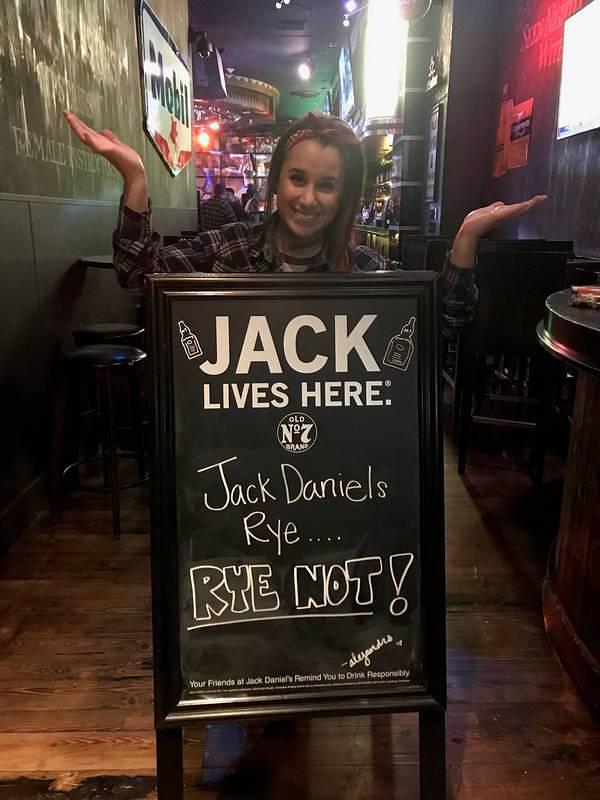 Mobil
JACK
LIVES HERE.®
OLD
Nº7
BRAND
Jack Daniels
Rye....
RYE NOT!
-alejandro
Your Friends at Jack Daniel's Remind You to Drink Responsibly